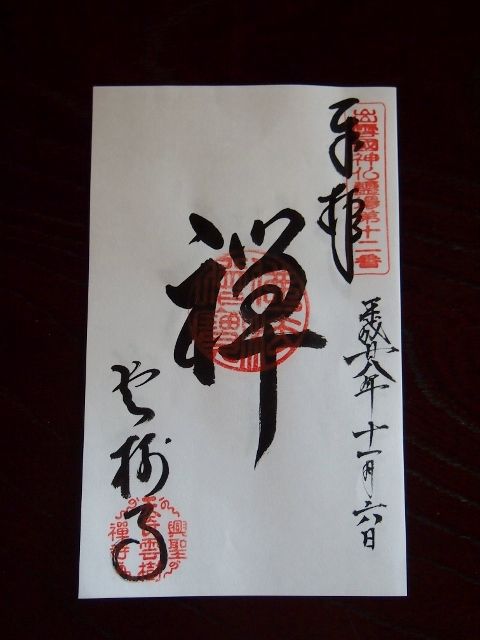 奉拝
出雲國神仏霊場第十二番
平成廿八年十一月六日
禅
雲樹寺